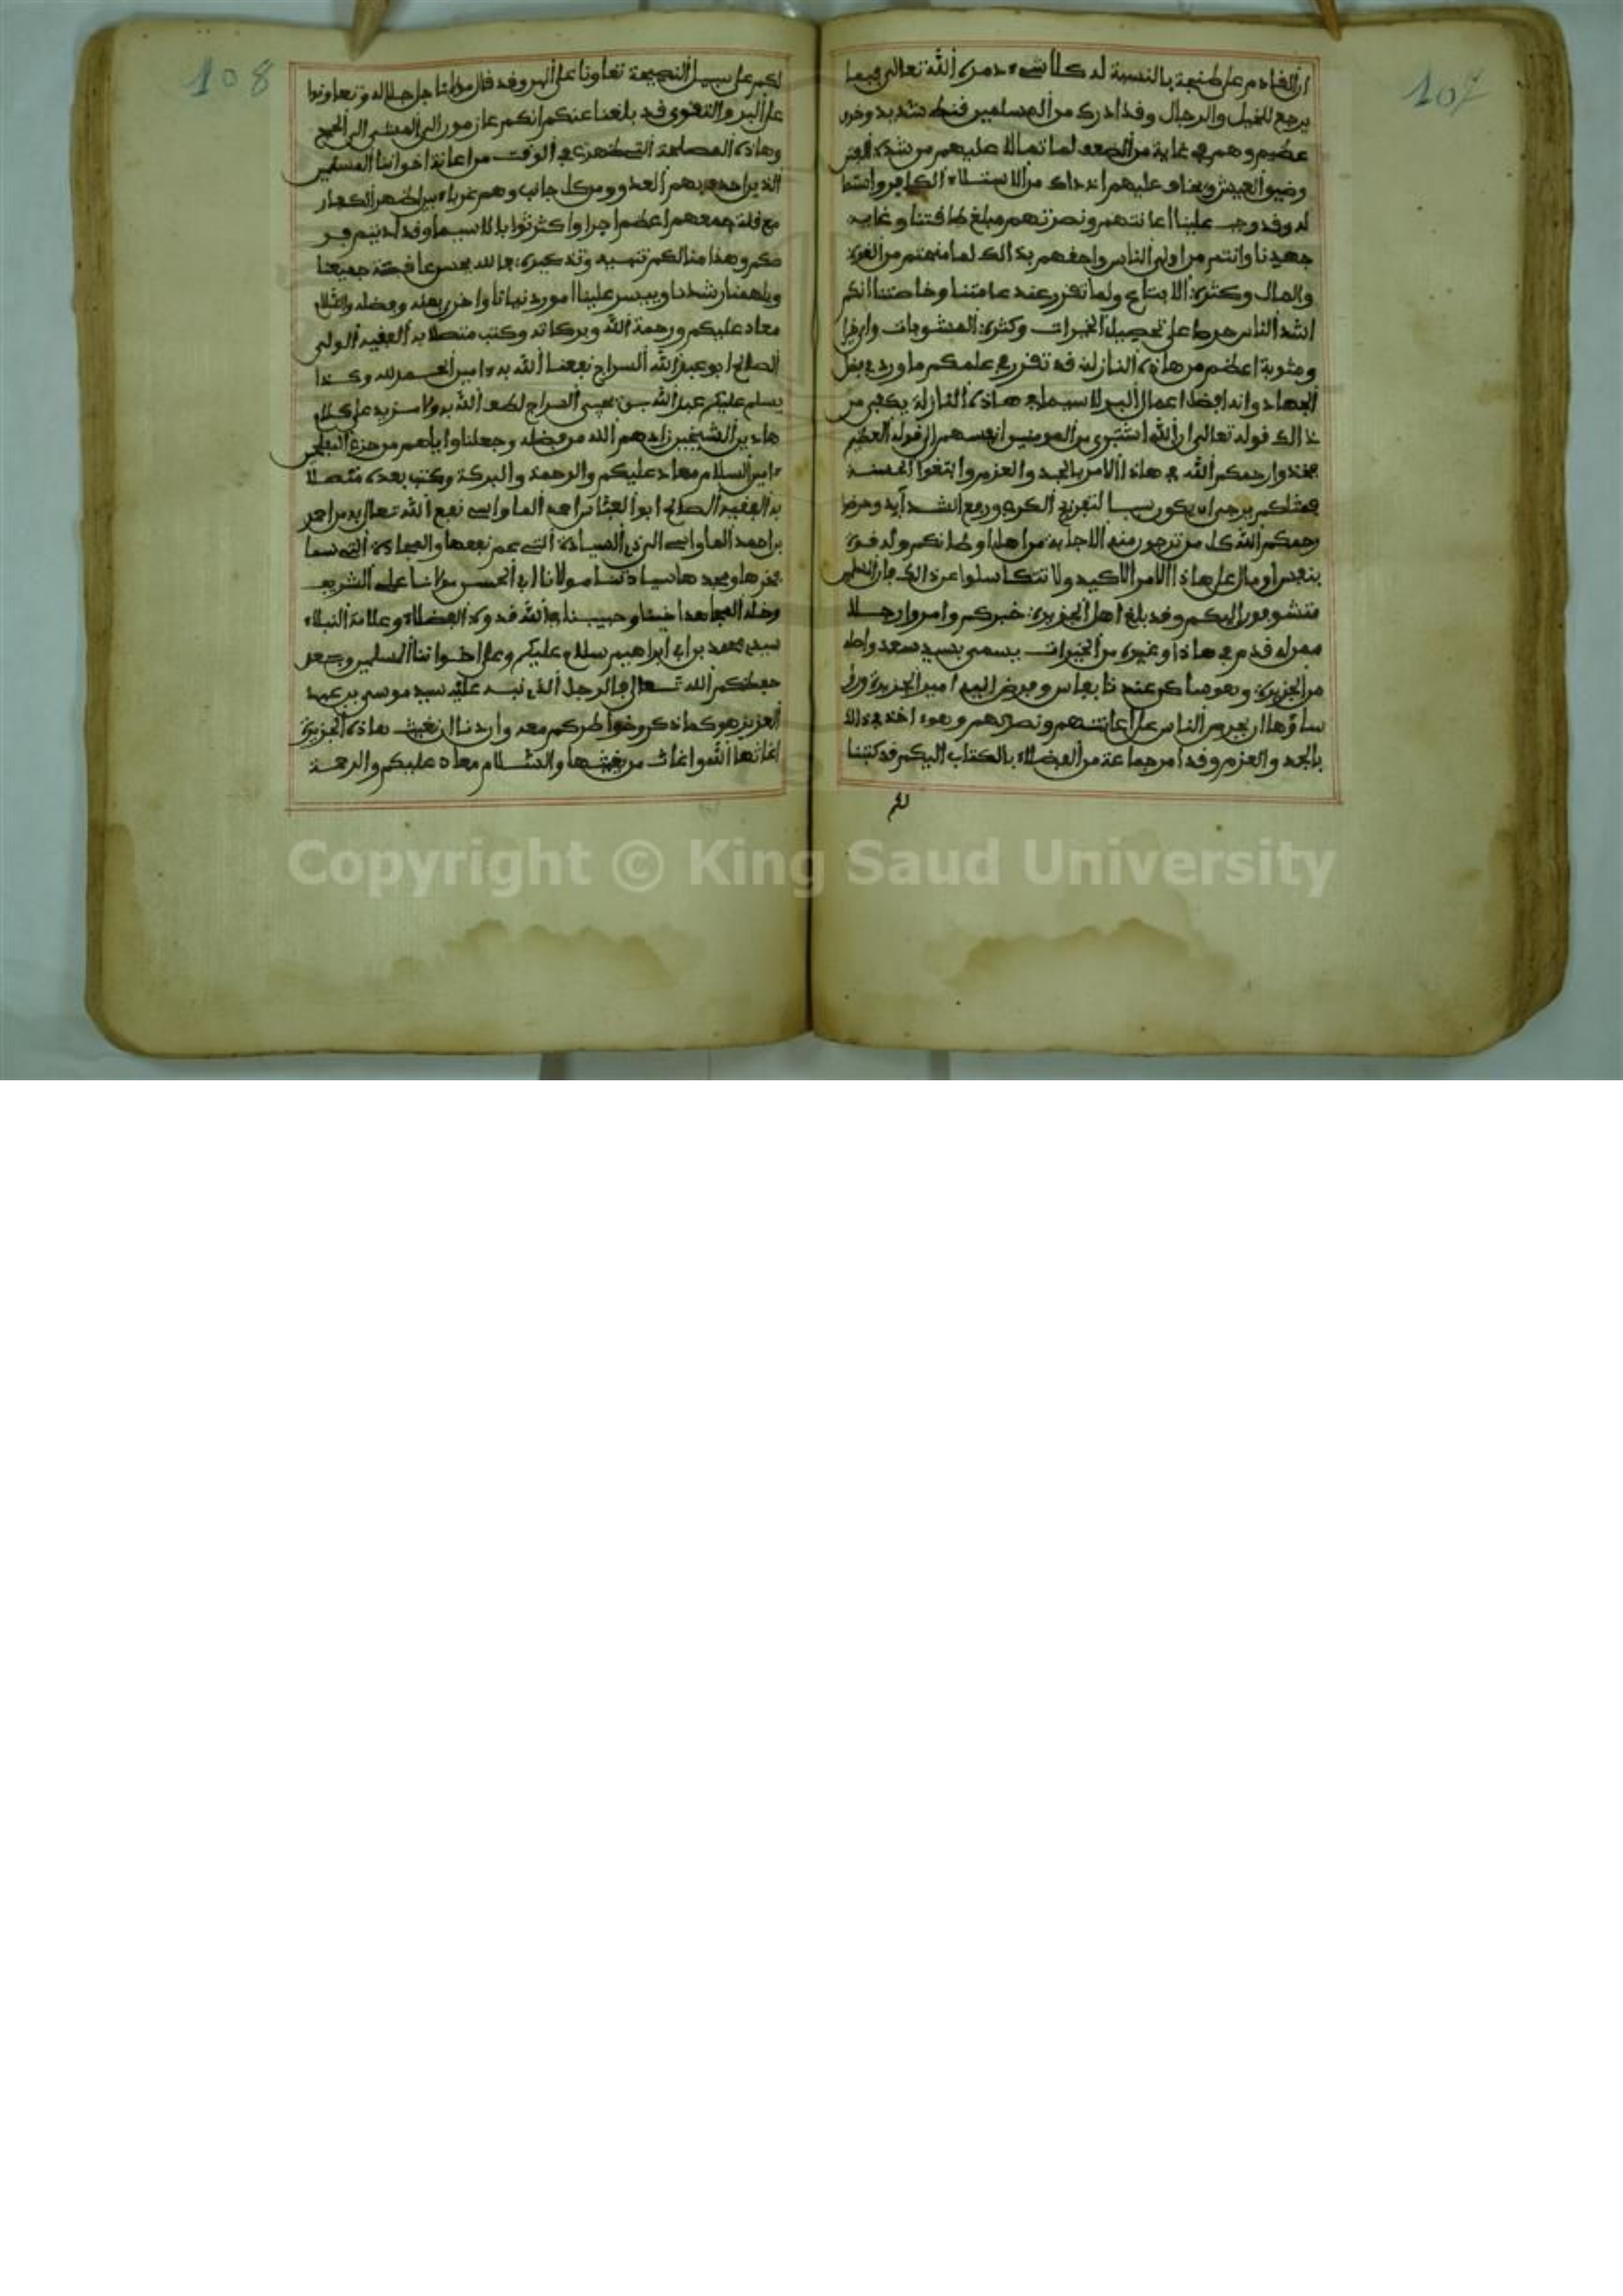 107
ان القادم على طنجة بالنسبة له كلا شيء دمره الله تعالى فيما
يرجع للخيل والرجال وقد ادرك من المسلمين قنط شديد وخوف
عظيم وهم في غاية من الضعف لما تمالا عليهم من شدة الفتن
وضيق العيش ويخاف عليهم اذ ذاك من الاستيلاء الكافر
له وقد وجب علينا اعانتهم ونصرتهم مبلغ طاقتنا وغاية
جهدنا وانتم من اولى الناس واحقهم بذالك لما منحتم من العزة
والمال وكثرة الاتباع ولما تقرر عند عامتنا وخاصتنا انكم
اشد الناس حرصا على تحصيل الخيرات وكثرة المثوبات واي
ومثوبة اعظم من هاذه النازلة قد تقرر في علمكم ما ورد في فضل
الجهاد وانه افضل اعمال البر لا سيما في هاذه النازلة يكفي من
ذالك قوله تعالى ان الله اشترى من المومنين انفسهم الى قوله العظيم
فخذوا رحمكم الله في هاذا الامر بالجد والعزم وابتغوا الحسنة
فمثلكم يرجى ان يكون سببا لتفريج الكرب ورفع الشدائد وحرضوا
رحمكم الله كل من ترجون منه الاجابة من اهل اوطانكم وله قوة
بنفس او مال على هاذا الامر الاكيد ولا تتكاسلوا عن ذالك فان الناس
متشوفون اليكم وقد بلغ اهل الجزيرة خبركم وامروا رجلا
ممن له قدم في هاذا وغيره من الخيرات يسمى بسيد سعد واصله
من الجزيرة وهو ساكن عندنا بفاس وفوض اليه امير الجزيرة
ساؤها ان يحرض الناس على اعانتهم ونصرتهم وهو اخذ في ذالك
بالجد والعزم وقد امر جماعة من الفضلاء بالكتاب اليكم فكتبنا
لكم
108
لكم على سبيل النصيحة تعاونا على البر وقد قال مولانا جل جلاله وتعاونوا
على البر والتقوى قد بلغنا عنكم انكم عازمون الى المشي الى الحج
وهاذه المصلحة التي ظهرت في الوقت من اعانة اخواننا المسلمين
الذين احدق بهم العدو ومن كل جانب وهم غرباء بين اظهر الكفار
مع قلة جمعهم اعظم اجرا واكثر ثوابا لا سيما وقد اديتم فر
ضكم وهذا منا لكم تنبيه وتذكرة فالله يحسن عاقبة جميعنا
ويلهمنا رشدنا وييسر علينا امور دنيانا واخرى بمنه وفضله والسلام
معاد عليكم ورحمة الله وبركاته وكتب متصلا به الفقيه الولي
الصالح ابو عبد الله السراج نفعنا الله به امين الحمد لله وكذا
يسلم عليكم عبد الله بن يحيى السراج لطف الله به ولا مزيد على كلام
هاذين الشيخين زادهم الله من فضله وجعلنا واياهم من حزبه المفلحين
امين السلام معاد عليكم والرحمة والبركة وكتب بعده متصلا
به الفقيه الصالح ابو العباس احمد الماواسي نفع الله تعالى به من احمد
بن احمد الماواسي الى السيادة التي عم نفعها والمجادة التي سما
فخرها ومجدها سيادتنا مولانا ابي الحسن مولانا علي الشريف
وخله المجاهد اخينا وحبيبنا في الله قدوة الفضلاء وعلامة النبلاء
سيدي محمد بن ابي ابراهيم سلام عليكم وعلى اخواننا المسلمين
حفظكم الله تعالى فالرجل الذي نبه عليه سيد موسى بن عبد
العزيز هو كما ذكر وخواطركم معه واردنا ان نغيث هاذه الجزيرة
اغاثها الله واغاث من يغيثها والسلام معاد عليكم والرحمة
Copyright © King Saud University